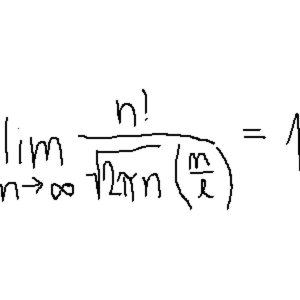 lim n→∞ n! / √2πn (n/e) = 1